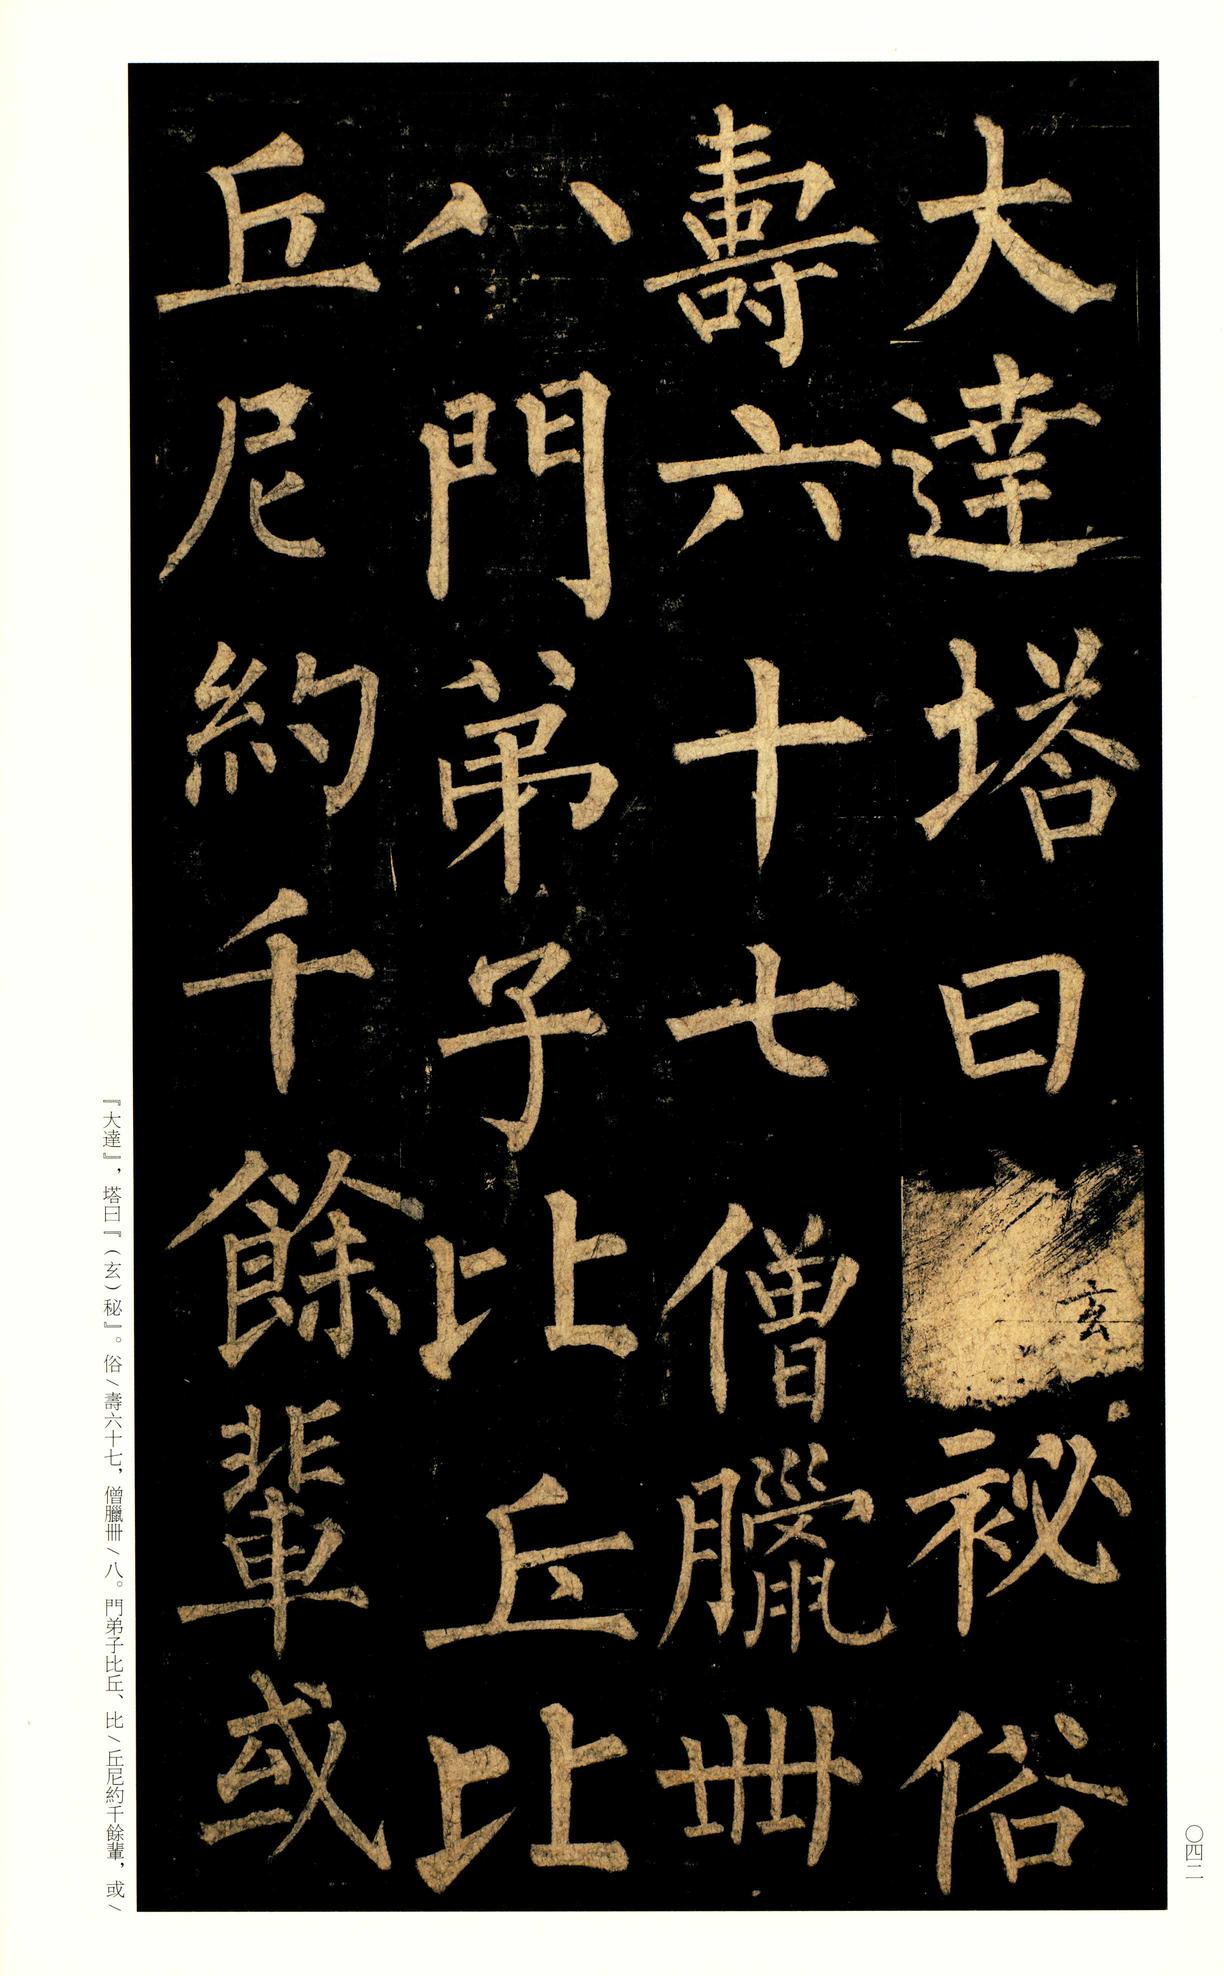 大達塔曰玄祕俗
壽六十七僧臘卌
八門弟子比丘比
丘尼約千餘輩或
『大達』，塔曰『（玄）秘』。俗╲壽六十七，僧臘卌╲八。門弟子比丘、比╲丘尼約千餘輩，或╲
〇四二